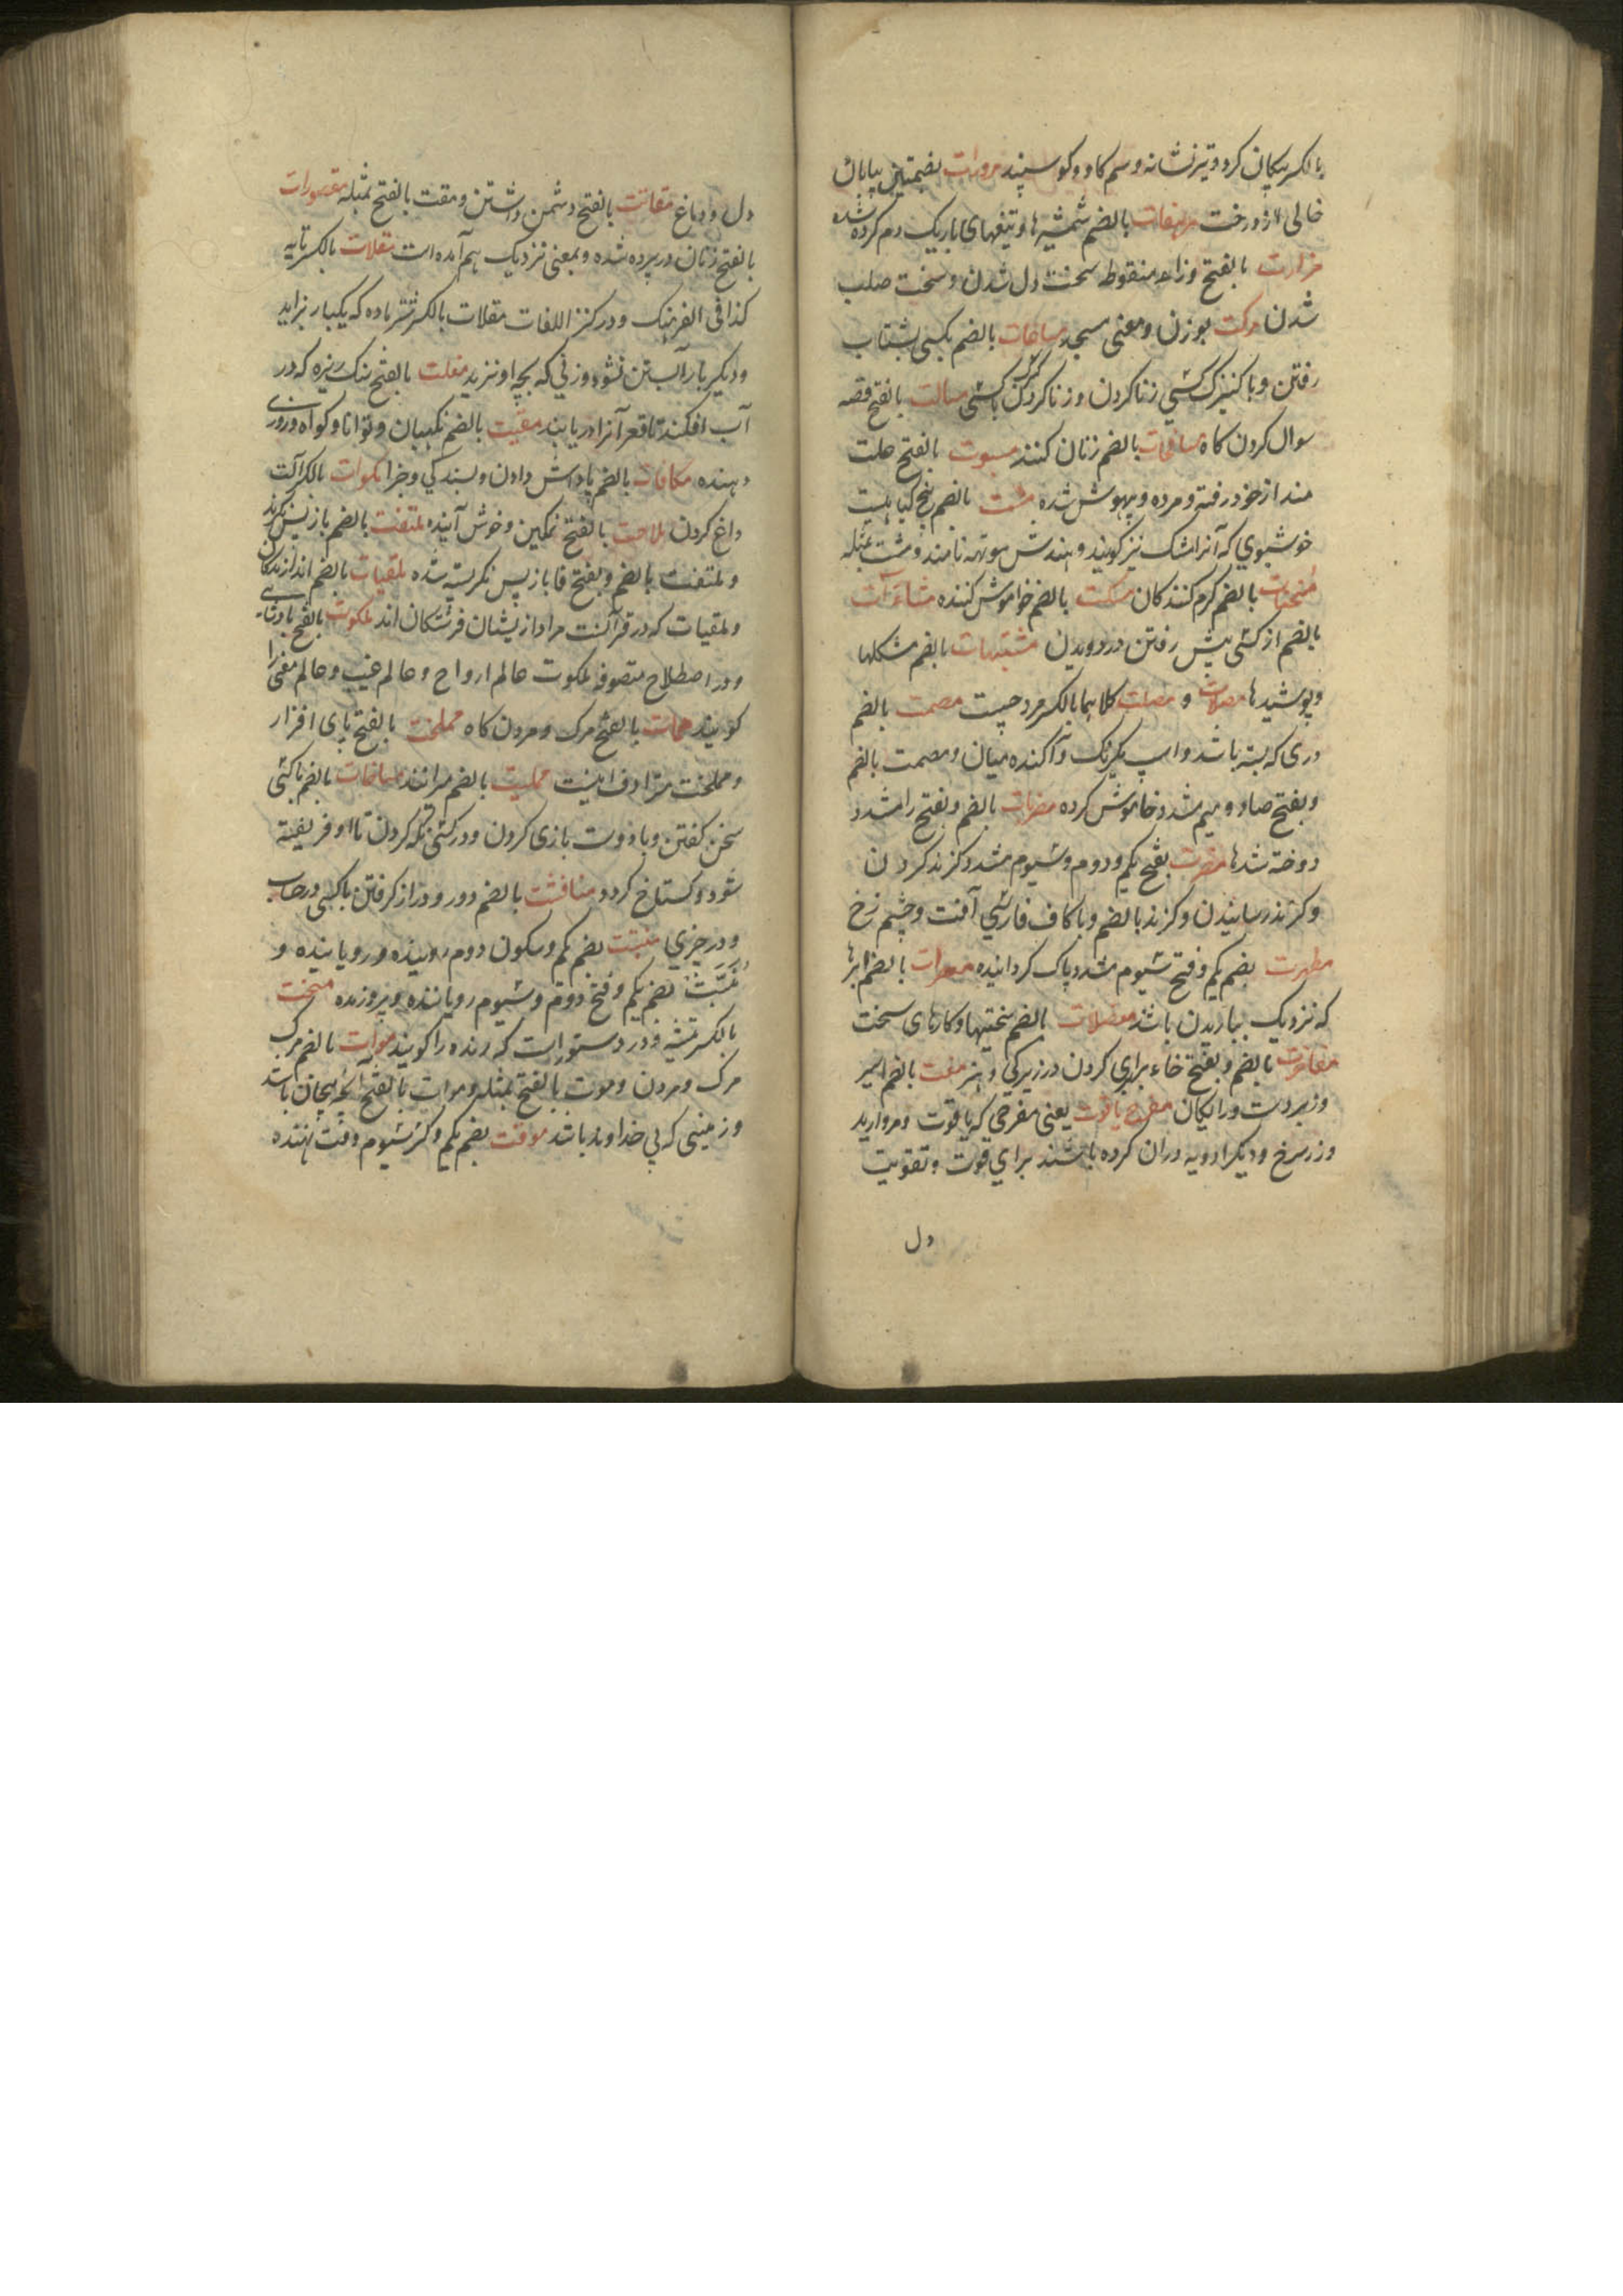 بالکسر پیکان کرد و تیر نشانه و سم کاو و کوسپند مرورات بضمتین بیابان
خالی از درخت مرهفات بالضم شمشیرها و تیغهای باریک دم کرده شده
مزارت بالفتح و زاء منقوط سخت دل شدن و سخت صلب
شدن مزکت بوزن و معنی مسجد مسابقات بالضم بکسی بشتاب
رفتن و با کنیزک کسی زنا کردن و زنا کردن باکسی مسالت بالفتح قصه
سوال کردن کاه مسافحات بالضم زنان کنند مسبوت بالفتح علت
مند از خود رفته و مرده و بیهوش شده مشت بالضم بیخ کیاهیست
خوشبوی که آنرا مشک نیز کویند و بهندش موتهه نامند و مشت بمثله
بالضم کرم کنندکان مسکت بالضم خاموش کننده مشاءرات
بالضم از کسی پیش رفتن در دویدن مشتبهات بالضم مشکلها
و پوشیدها مصلات و مصلت کلاهما بالکسر مرد چست مصمت بالضم
دری که بسته باشد و اسپ یکرنک و آکنده میان و مصمت بالضم
و بفتح صاد و میم مشدد خاموش کرده مضربات بالضم و بفتح را مشدد
دوخته شدها مضرت بفتح یکم و دوم و سیوم مشدد کزند کردن
و کزند رسانیدن و کزند بالضم و با کاف فارسی آفت و چشم زخ
مطهرت بضم یکم و فتح سیوم مشدد پاک کرداننده معصرات بالضم ابرها
که نزدیک بباریدن باشد معضلات بالضم سختیها و کارهای سخت
مفاخرت بالضم و بفتح خاء برابری کردن در زیرکی و هنر مفت بالضم اسیر
و زبردست و رایکان مفرح یاقوت یعنی مفرحی که یاقوت و مروارید
و زر سرخ و دیکر ادویه دران کرده باشند برای قوت و تقویت
دل
دل و دماغ مقاتت بالفتح دشمن داشتن و مقت بالفتح بمثله مقصورات
بالفتح زنان در پرده شده و بمعنی نزدیک هم آمده است مقلات بالکسر تابه
کذا فی الفرهنک و در کنز اللغات مقلات بالکسر شتر ماده که یکبار بزاید
و دیکر بار آبستن نشود و زنی که بچه او نزید مقلت بالفتح سنک ریزه که در
آب افکنند تا قعر آنرا دریابند مقیت بالضم نکهبان و توانا و کواه و روزی
دهنده مکافات بالضم پاداش دادن و بسندکی و جزا مکوات بالکسر آلت
داغ کردن ملاحت بالفتح نمکین و خوش آینده ملتفت بالضم باز پس نکرند
و ملتفت بالضم و بفتح فا باز پس نکریسته شده ملقیات بالضم اندازندکان
و ملقیات که در قرآنست مراد از یشان فرشتکان اند ملکوت بالفتح پادشاهی
و در اصطلاح متصوفه ملکوت عالم ارواح و عالم غیب و عالم معنی را
کویند ممات بالفتح مرک و مردن کاه مملخت بالفتح پای افزار
و مملخت مترادف اینست ممیت بالضم میراننده مناغات بالضم با کسی
سخن کفتن و با دوست بازی کردن و در کسی نکه کردن تا او فریفته
شود و کستاخ کردد مناقشت بالضم دور و دراز کرفتن با کسی در حساب
و در چیزی منبت بضم یکم و سکون دوم روینده و رویاننده و
منبت بضم یکم و فتح دوم و سیوم رویاننده و پروزنده منحت
بالکسر تیشه و در دستور است که رنده را کویند موات بالضم مرک
مرک و مردن و موت بالفتح بمثله و موات بالفتح آنچه بیجان باشد
و زمینی که بی خداوند باشد موقت بضم یکم و کسر سیوم وقت نهنده